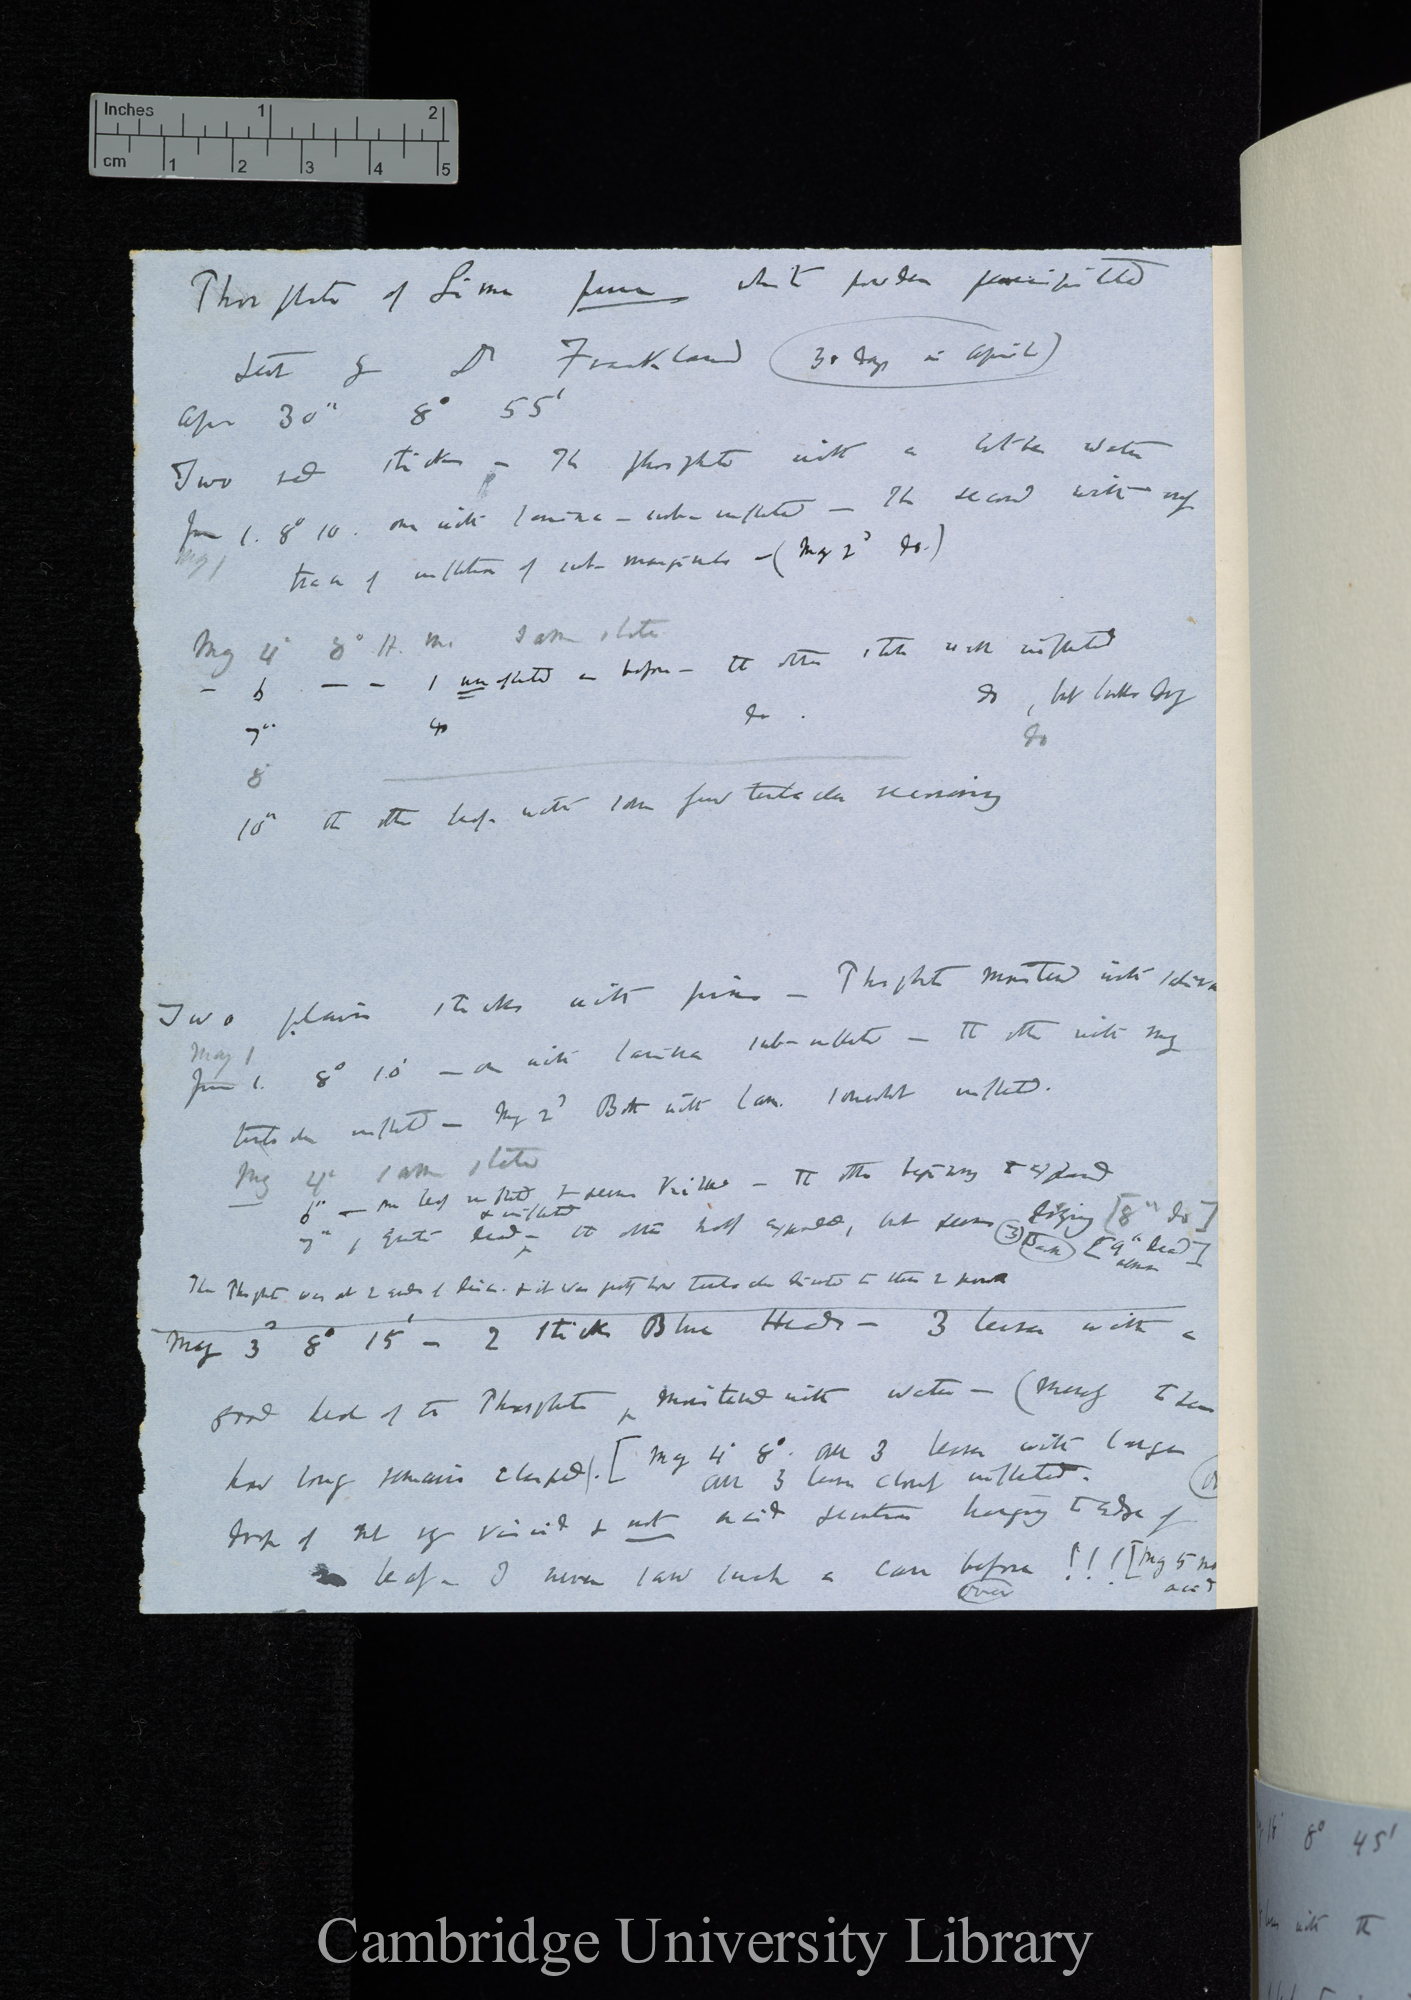 Inches 1 2
cm 1 2 3 4 5
Phosphate of Lime pure white powder precipitated
sent by Dr Frankland (30 days in April)
Apr 30" 8° 55'
Two red sticks — The phosphate with a little water
June 1. 8° 10'. one with lamina — sub-inflected — The second with only
May 1
trace of inflection of sub-marginals — (May 2d do.)
May 4" 8° A. m. same state
— 6 — — 1 uninflected as before — the other still well inflected
7" do do. do, but looks dry
8" do
10" the other leaf with some few tentacles
Two plain sticks with pins — Phosphate moistened with saliva
May 1
June 1. 8° 10' — one with lamina sub-inflected — the other with only
tentacles inflected — May 2d Both with lam. somewhat inflected.
May 4" same state
6" — one leaf inflected & seems — the other beginning to expand
& inflected
7", quite dead — the other half expanded, but seems dying [8" do]
3 Back [9" dead]
The Phosphate was at 2 ends of disc. & it was pretty how tentacles directed to these 2 points
May 3d 8° 15' — 2 sticks Blue Heads — 3 leaves with a
good deal of the Phosphate, moistened with water — (merely to see
how long remains clasped). [May 4" 8°. all 3 leaves with large
all 3 leaves closely inflected.
drops of not very viscid & not acid secretion hanging to edge of
leaf — I never saw such a case before !!! [May 5 no
acid
(over)
8° 45'
with the
Cambridge University Library